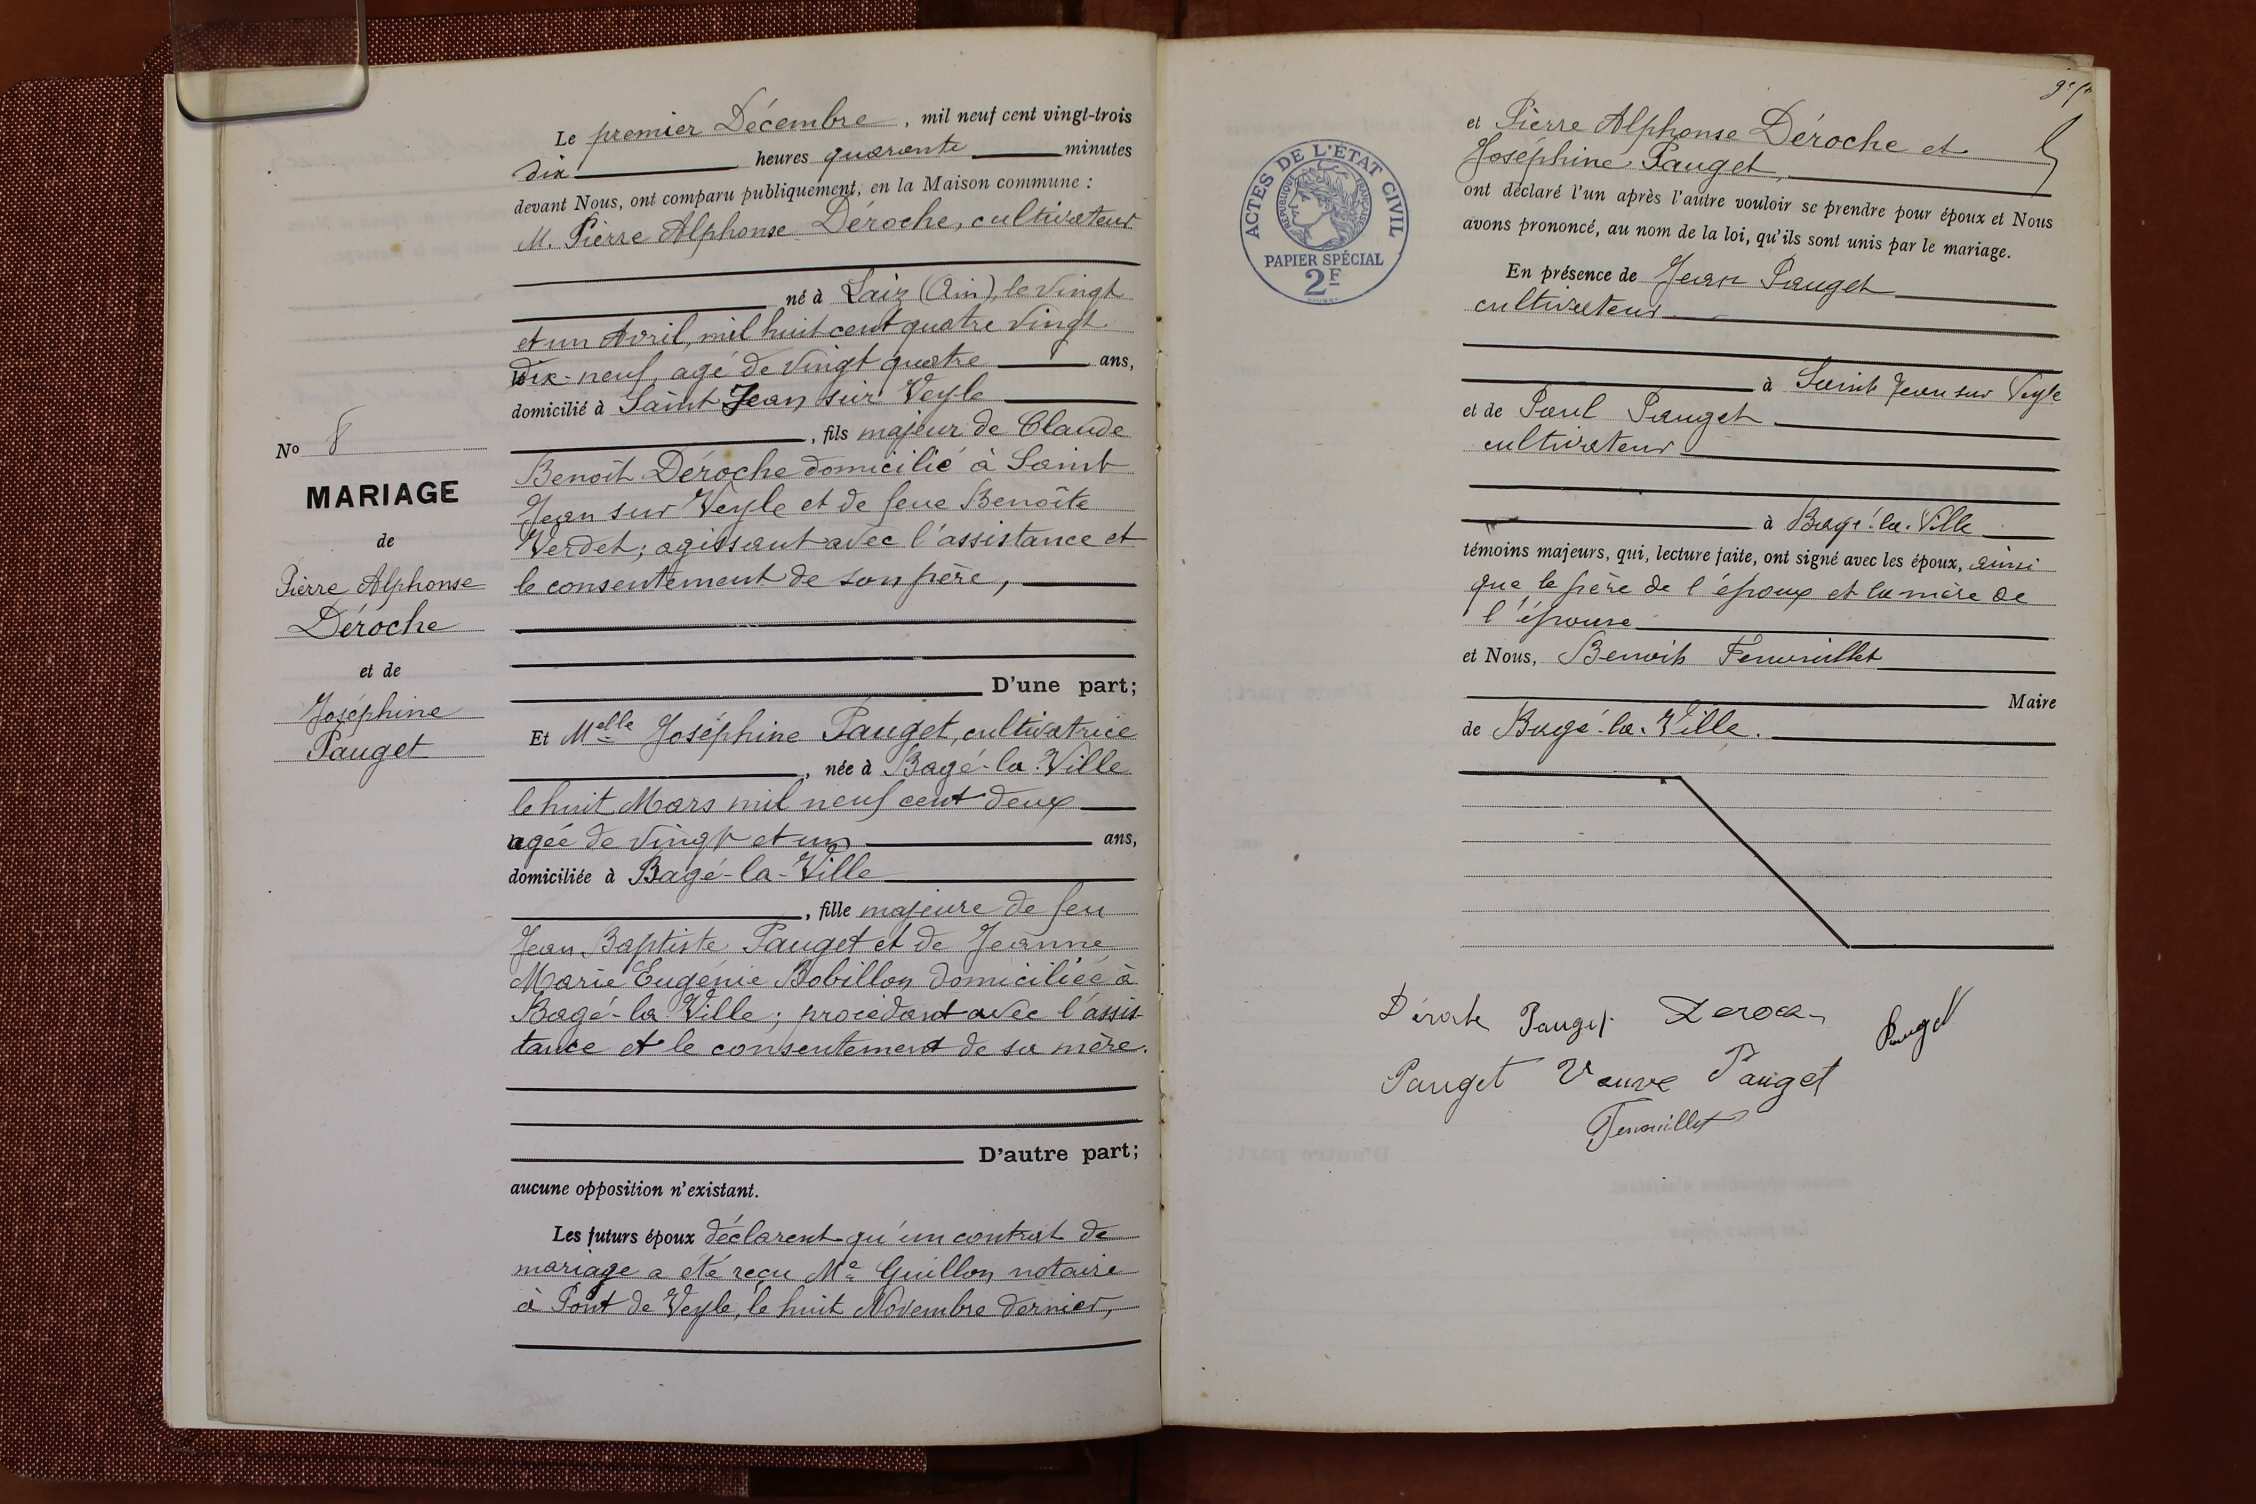 Le premier Décembre, mil neuf cent vingt-trois
dix heures quarante minutes
devant Nous, ont comparu publiquement, en la Maison commune :
M. Pierre Alphonse Déroche, cultivateur
né à Laiz (Ain), le vingt
et un Avril, mil huit cent quatre vingt
dix-neuf, agé de vingt quatre ans,
domicilié à Saint Jean sur Veyle
, fils majeur de Claude
Benoît Déroche domicilié à Saint
Jean sur Veyle et de feue Benoîte
Verdet; agissant avec l'assistance et
le consentement de son père,
D'une part;
Et Melle Joséphine Pauget, cultivatrice
, née à Bagé-la-Ville
le huit Mars mil neuf cent deux
agée de vingt et un ans,
domiciliée à Bagé-la-Ville
, fille majeure de feu
Jean Baptiste Pauget et de Jeanne
Marie Eugénie Bobillon domiciliée à
Bagé-la Ville; procédant avec l'assis-
tance et le consentement de sa mère.
D'autre part;
aucune opposition n'existant.
Les futurs époux déclarent qu'un contrat de
mariage a été reçu Me Guillon notaire
à Pont de Veyle, le huit Novembre dernier,
No 8
MARIAGE
de
Pierre Alphonse
Déroche
et de
Joséphine
Pauget
ACTES DE L'ÉTAT CIVIL
RÉPUBLIQUE FRANÇAISE
PAPIER SPÉCIAL
2F
et Pierre Alphonse Déroche et
Joséphine Pauget,
ont déclaré l'un après l'autre vouloir se prendre pour époux et Nous
avons prononcé, au nom de la loi, qu'ils sont unis par le mariage.
En présence de Jean Pauget
cultivateur
à Saint Jean sur Veyle
et de Paul Pauget
cultivateur
à Bagé-la-Ville
témoins majeurs, qui, lecture faite, ont signé avec les époux, ainsi
que le père de l'époux et la mère de
l'épouse
et Nous, Benoit Fenouillet
Maire
de Bagé-la-Ville.
Déroche Pauget Pauget
Pauget Veuve Pauget
Fenouillet